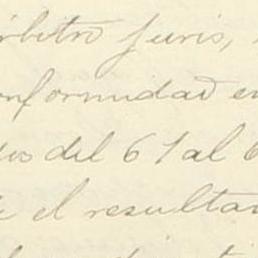 árbitro juris,
onformidad en
dos del 61 al 6
e el resultan